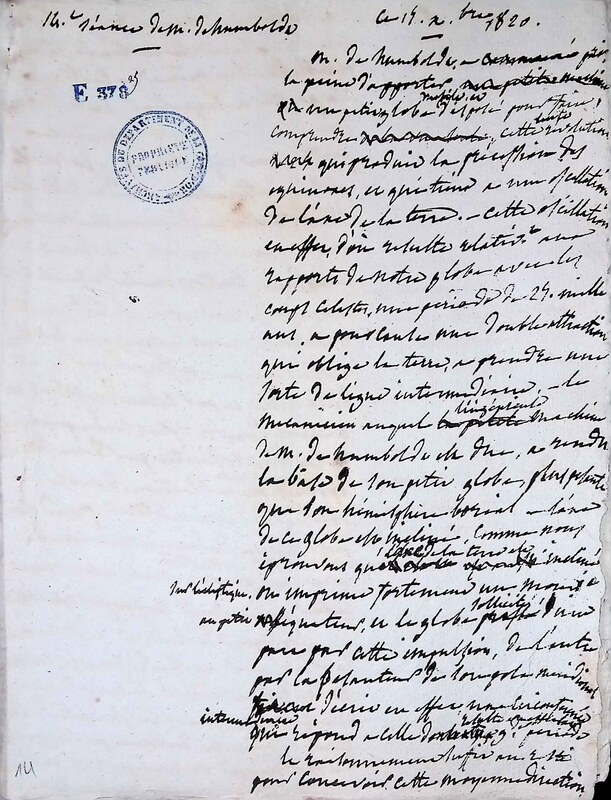 14.e séance de m. de humboldt
ce 15. x.bre 1820.
E 378 25
ARCHIVES DU DÉPARTEMENT DE LA
PROPRIÉTÉ PUBLIQUE
m. de humboldt, a commencé pris
la peine d'apporter une petite machine
un petit globe mobile, et disposé pour faire
comprendre cette lente révolution
qui produit la précession des
équinoxes, et qui tient a une oscillation
de l'axe de la terre. – cette oscillation
en effet, d'où résulte relativt aux
rapports de notre globe avec les
corps celestes, une période de 25. mille
ans, a pour cause une double attraction
qui oblige la terre, a prendre une
sorte de ligne intermédiaire. – le
mécanicien auquel l'ingénieuse la petite machine
de m. de humboldt est due, a rendu
la base de son petit globe, plus pesante
que son hémisphère boréal – l'axe
de ce globe est incliné, comme nous
éprouvons que l'axe de la terre est incliné
sur l'écliptique.
on imprime fortement un mouvt a
au petit
l'équateur, et le globe sollicité d'une
part par cette impulsion, de l'autre
par la pesanteur de son pole méridional
décrit en effet, une circonférence
intermédiaire
qui répond a celle d'où résulte période
le raisonnement suffit au reste
pour concevoir cette moyenne direction,
14